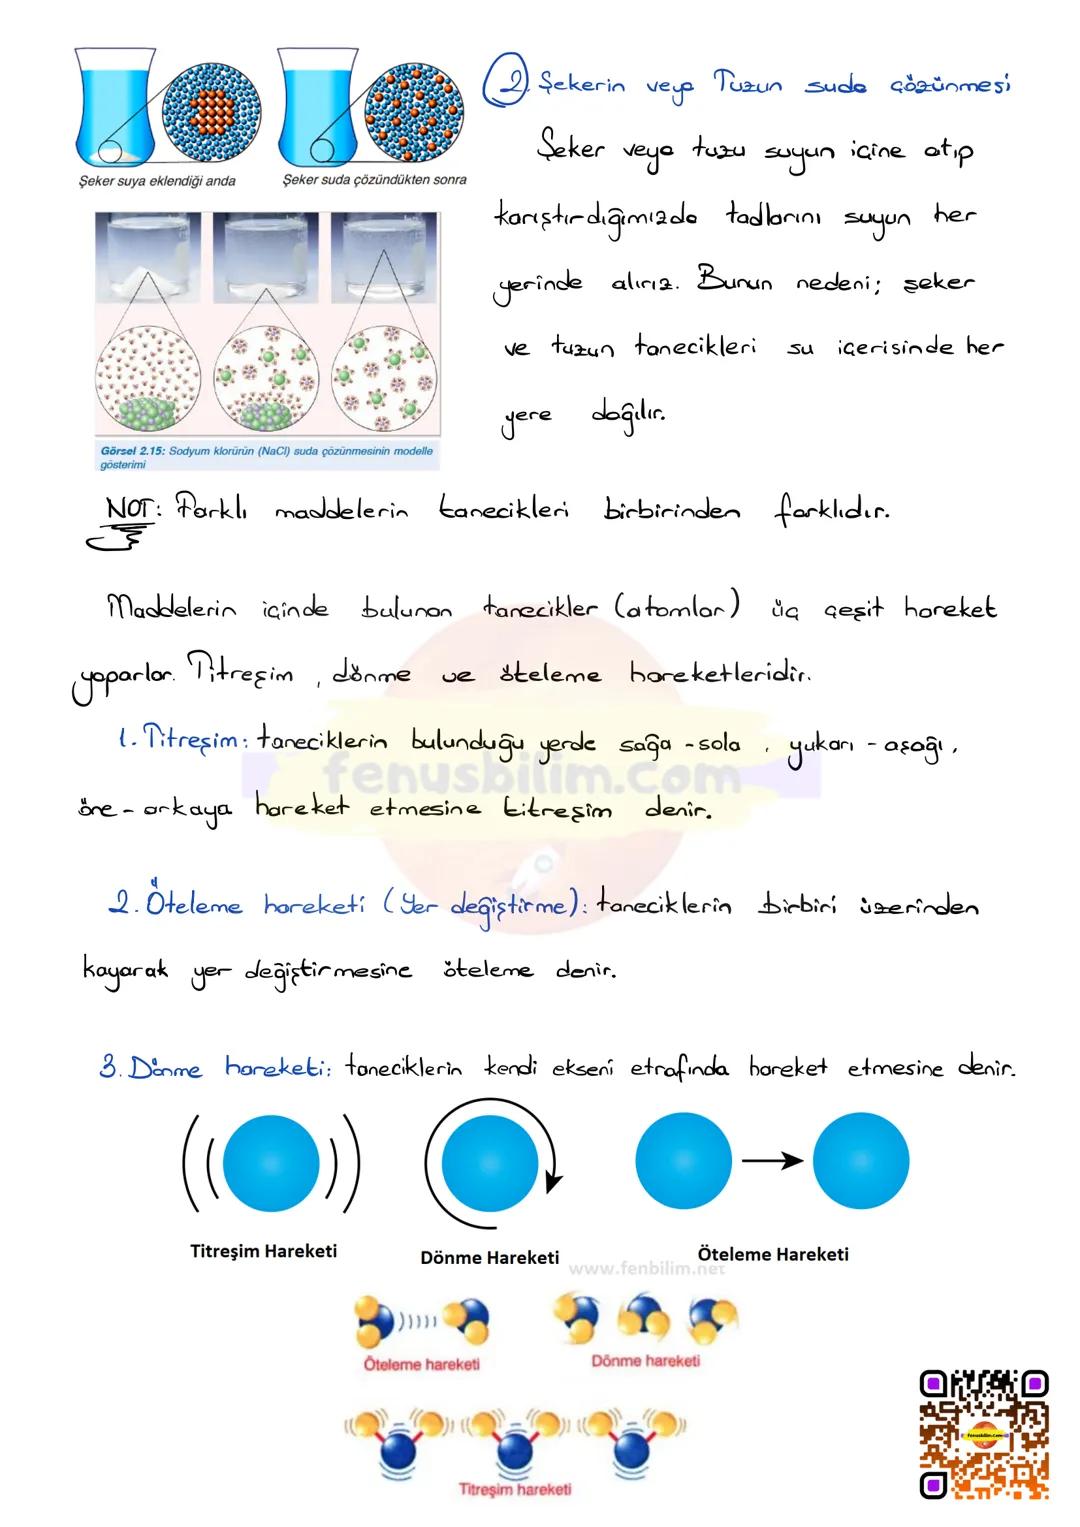 Şeker suya eklendiği anda
Şeker suda çözündükten sonra
2. Şekerin veya Tuzun suda çözünmesi
Şeker veya tuzu suyun içine atıp
karıştırdığımızda tadlarını suyun her
yerinde alırız. Bunun nedeni; şeker
ve tuzun tanecikleri su içerisinde her
yere dağılır.
Görsel 2.15: Sodyum klorürün (NaCl) suda çözünmesinin modelle
gösterimi
NOT: Farklı maddelerin tanecikleri birbirinden farklıdır.
Maddelerin içinde bulunan tanecikler (atomlar) üç çeşit hareket
yaparlar. Titreşim, dönme ve öteleme hareketleridir.
1. Titreşim: taneciklerin bulunduğu yerde sağa - sola, yukarı - aşağı,
öne - arkaya hareket etmesine titreşim denir.
fenusbilim.com
2. Öteleme hareketi (Yer değiştirme): taneciklerin birbiri üzerinden
kayarak yer değiştirmesine öteleme denir.
3. Dönme hareketi: taneciklerin kendi ekseni etrafında hareket etmesine denir.
Titreşim Hareketi
Dönme Hareketi
Öteleme Hareketi
www.fenbilim.net
Öteleme hareketi
Dönme hareketi
Titreşim hareketi
fenusbilim.com